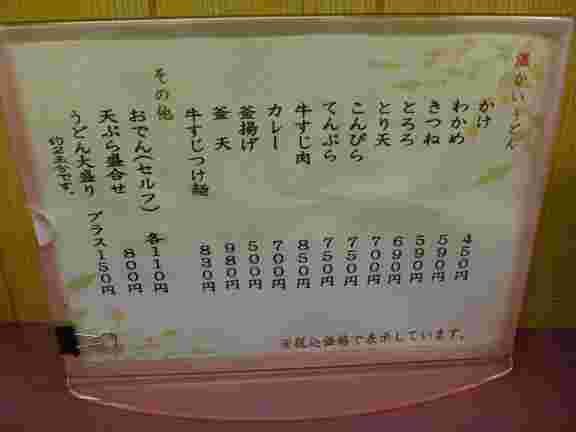 温かいうどん
かけ 450円
わかめ 590円
きつね 590円
とろろ 690円
とり天 700円
こんぴら 750円
てんぷら 750円
牛すじ肉 850円
カレー 700円
釜揚げ 500円
釜天 980円
牛すじつけ麺 830円
その他
おでん(セルフ) 各110円
天ぷら盛合せ 800円
うどん大盛り プラス150円
約2玉分です。
※税込価格で表示しています。